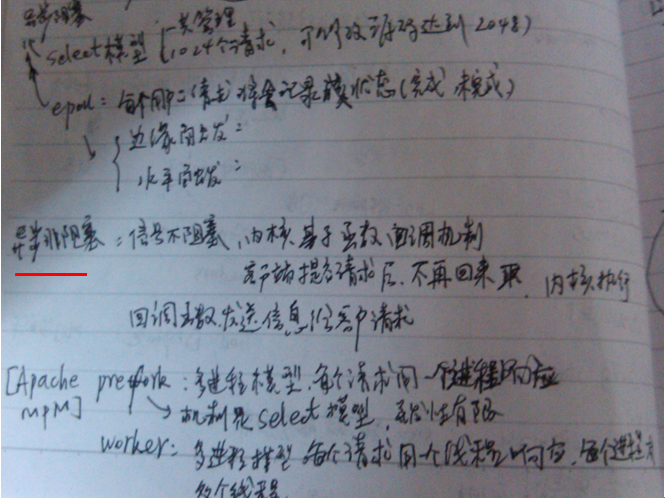 异步阻塞
select模型 一类管理
1024个请求，可修改源码达到2048)
epoll：每个用户请求 将会记录 状态(完成，未完成)
边缘触发：
水平触发：
异步非阻塞：信号不阻塞，内核基于函数回调机制
客户端提交请求后，不再回来取，内核执行
回调函数发送信息给客户请求
[Apache prefork：多进程模型，每个请求用一个进程响应
MPM] 机制是select模型，并发性有限
worker：多进程模型 每个请求用一个线程响应，每个进程有
多个线程